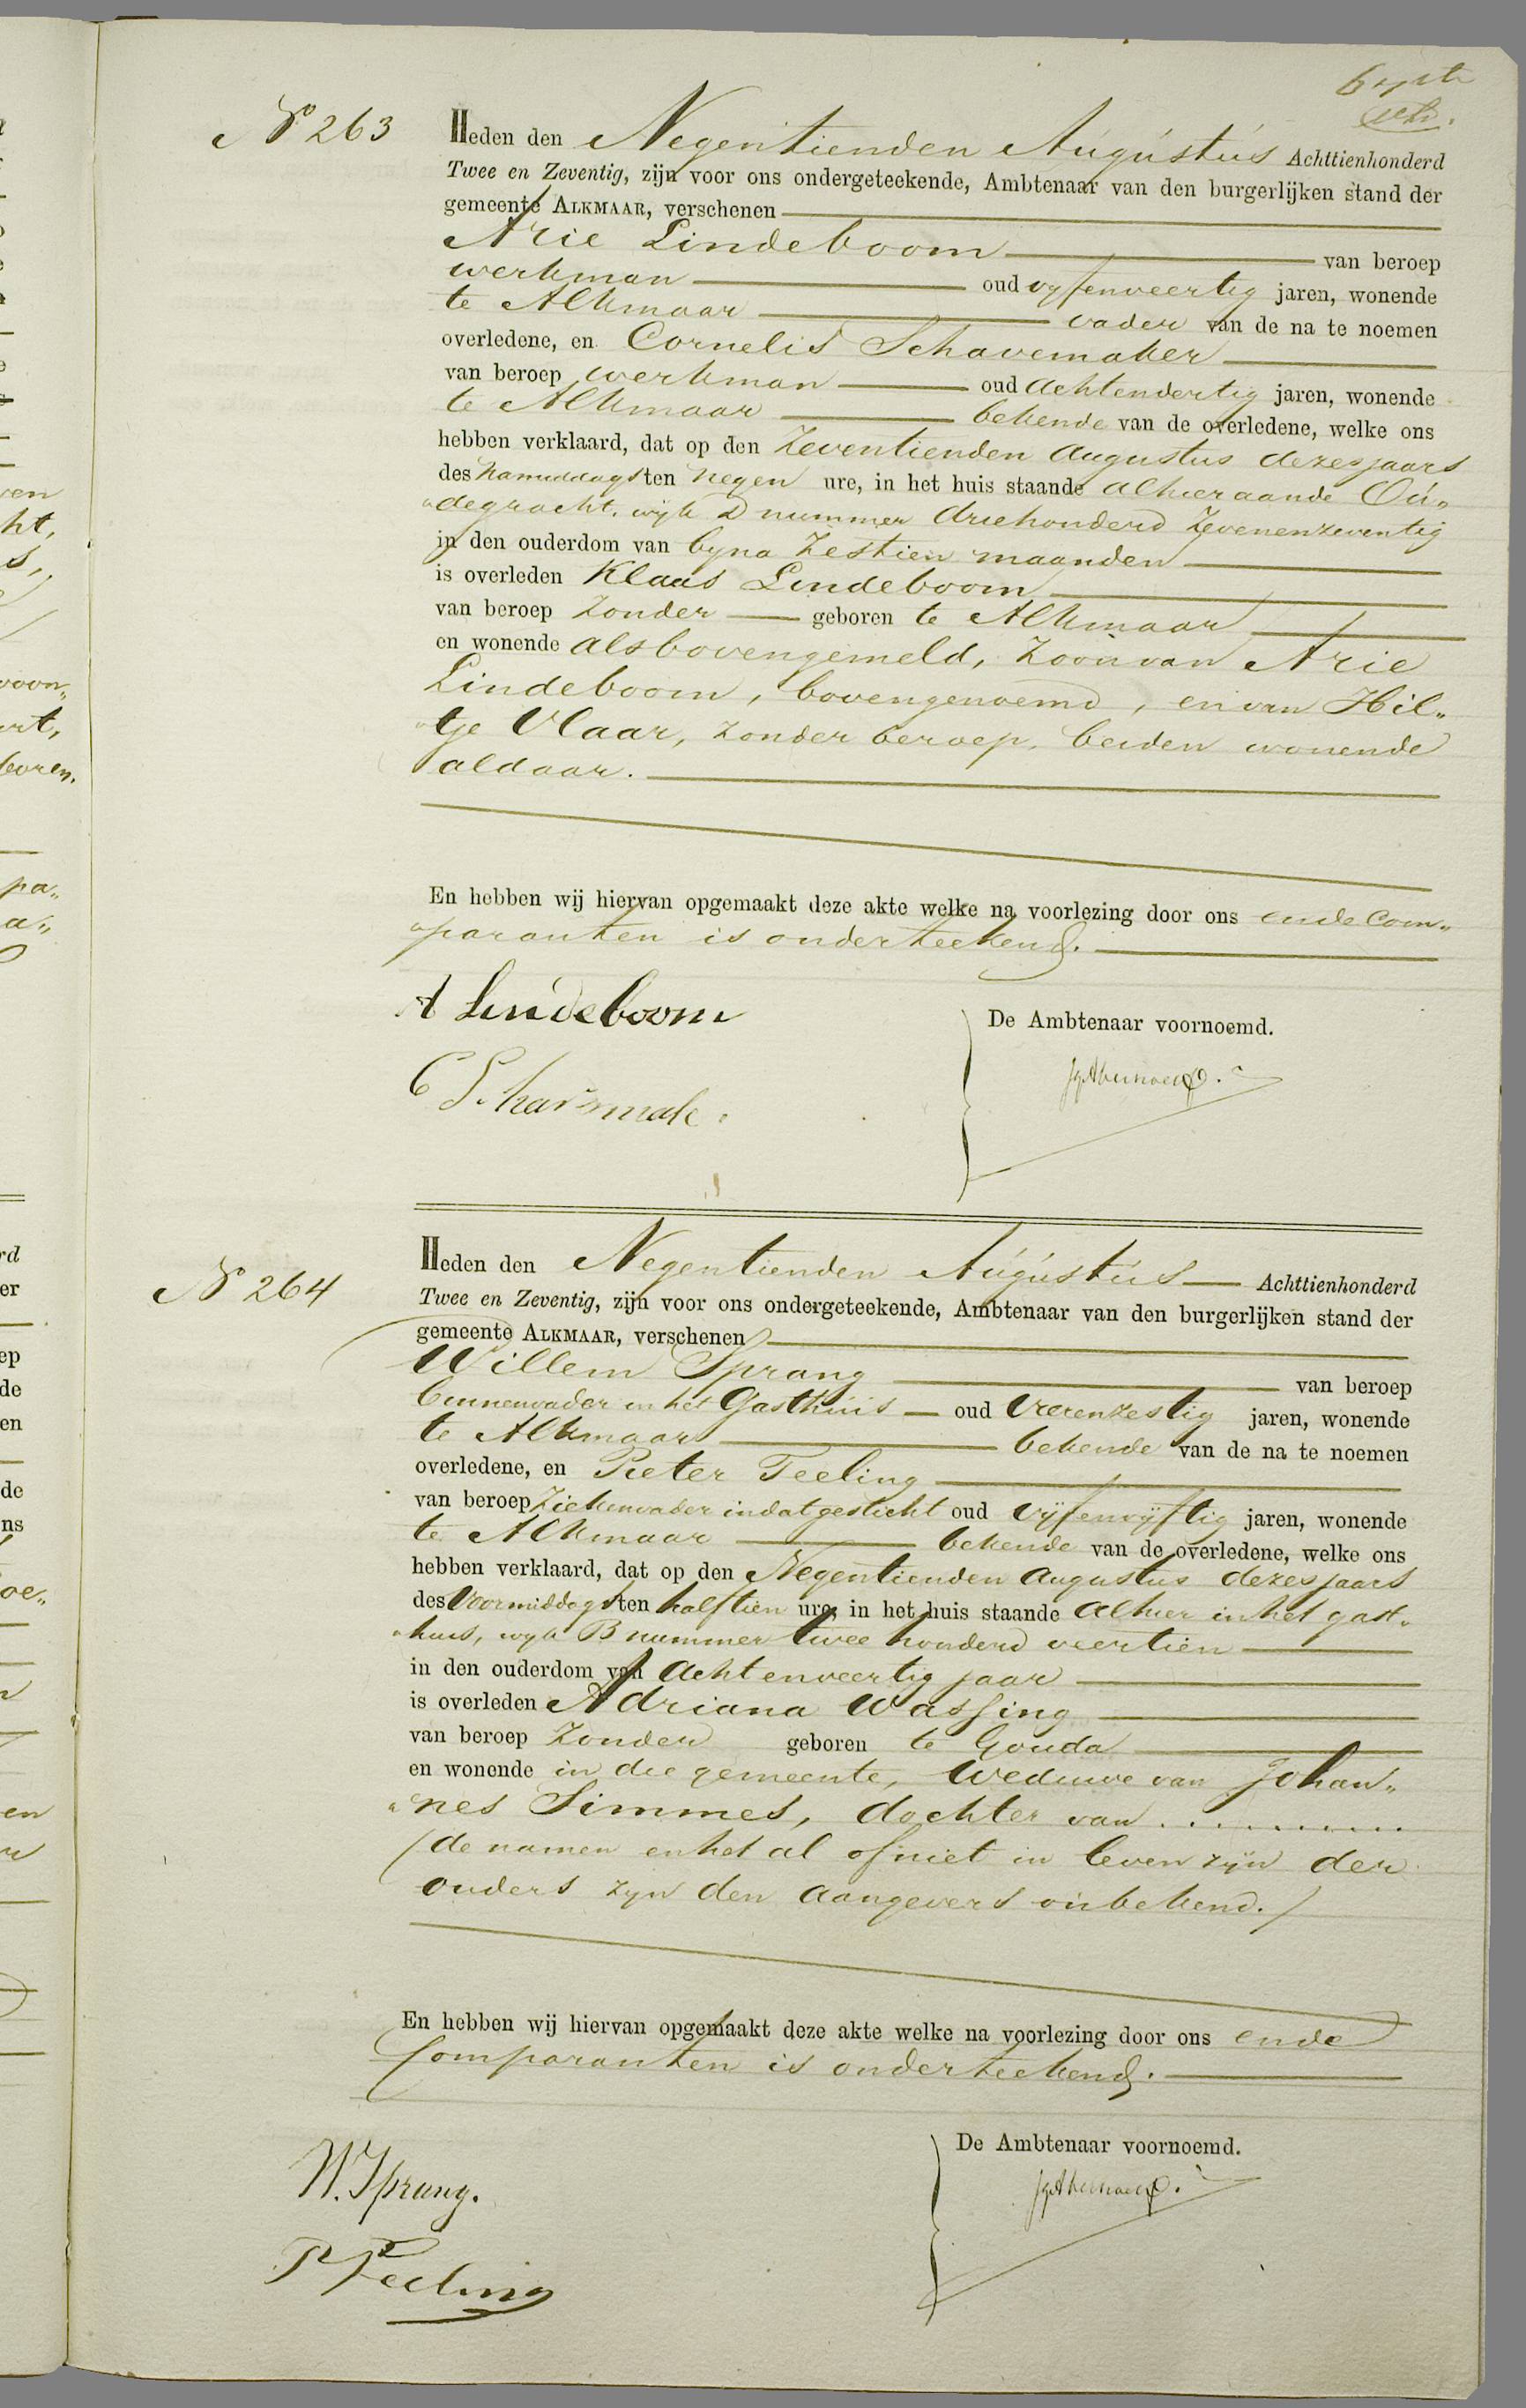 No 263
Heden den Negentienden Augustus Achttienhonderd
Twee en Zeventig, zijn voor ons ondergeteekende, Ambtenaar van den burgerlijken stand der
gemeente ALKMAAR, verschenen
Arie Lindeboom van beroep
werkman oud vyfenveertig jaren, wonende
te Alkmaar vader van de na te noemen
overledene, en Cornelis Schavemaker
van beroep werkman oud achtendertig jaren, wonende
te Alkmaar bekende van de overledene, welke ons
hebben verklaard, dat op den Zeventienden Augustus dezes jaars
des namiddags ten negen ure, in het huis staande alhier aan de Ou„
„degracht, wyk D nummer driehonderd zevenenzeventig
in den ouderdom van byna Zestien maanden
is overleden Klaas Lindeboom
van beroep zonder geboren te Alkmaar
en wonende als bovengemeld, Zoon van Arie
Lindeboom, bovengenoemd, en van Hil„
„tje Vlaar, zonder beroep, beiden wonende
aldaar.
En hebben wij hiervan opgemaakt deze akte welke na voorlezing door ons en de Com„
„paranten is onderteekend.
A Lindeboom
De Ambtenaar voornoemd.
No 264
Heden den Negentienden Augustus Achttienhonderd
Twee en Zeventig, zijn voor ons ondergeteekende, Ambtenaar van den burgerlijken stand der
gemeente ALKMAAR, verschenen
Willem Sprang van beroep
binnenvader in het Gasthuis oud vierenzestig jaren, wonende
te Alkmaar bekende van de na te noemen
overledene, en Pieter Teeling
van beroep Ziekenvader in dat gesticht oud vyfenvyftig jaren, wonende
te Alkmaar bekende van de overledene, welke ons
hebben verklaard, dat op den Negentienden Augustus dezes jaars
des Voormiddags ten half tien ure, in het huis staande alhier in het gast„
„huis, wyk B nummer twee honderd veertien
in den ouderdom van achtenveertig jaar
is overleden Adriana Wassing
van beroep Zonder geboren te Gouda
en wonende in die gemeente, Weduwe van Johan„
„nes Simmes, dochter van ..........
(de namen en het al of niet in leven zijn der
ouders zyn den aangevers onbekend.)
En hebben wij hiervan opgemaakt deze akte welke na voorlezing door ons en de
Comparanten is onderteekend.
De Ambtenaar voornoemd.
W. Sprang.
P Teeling